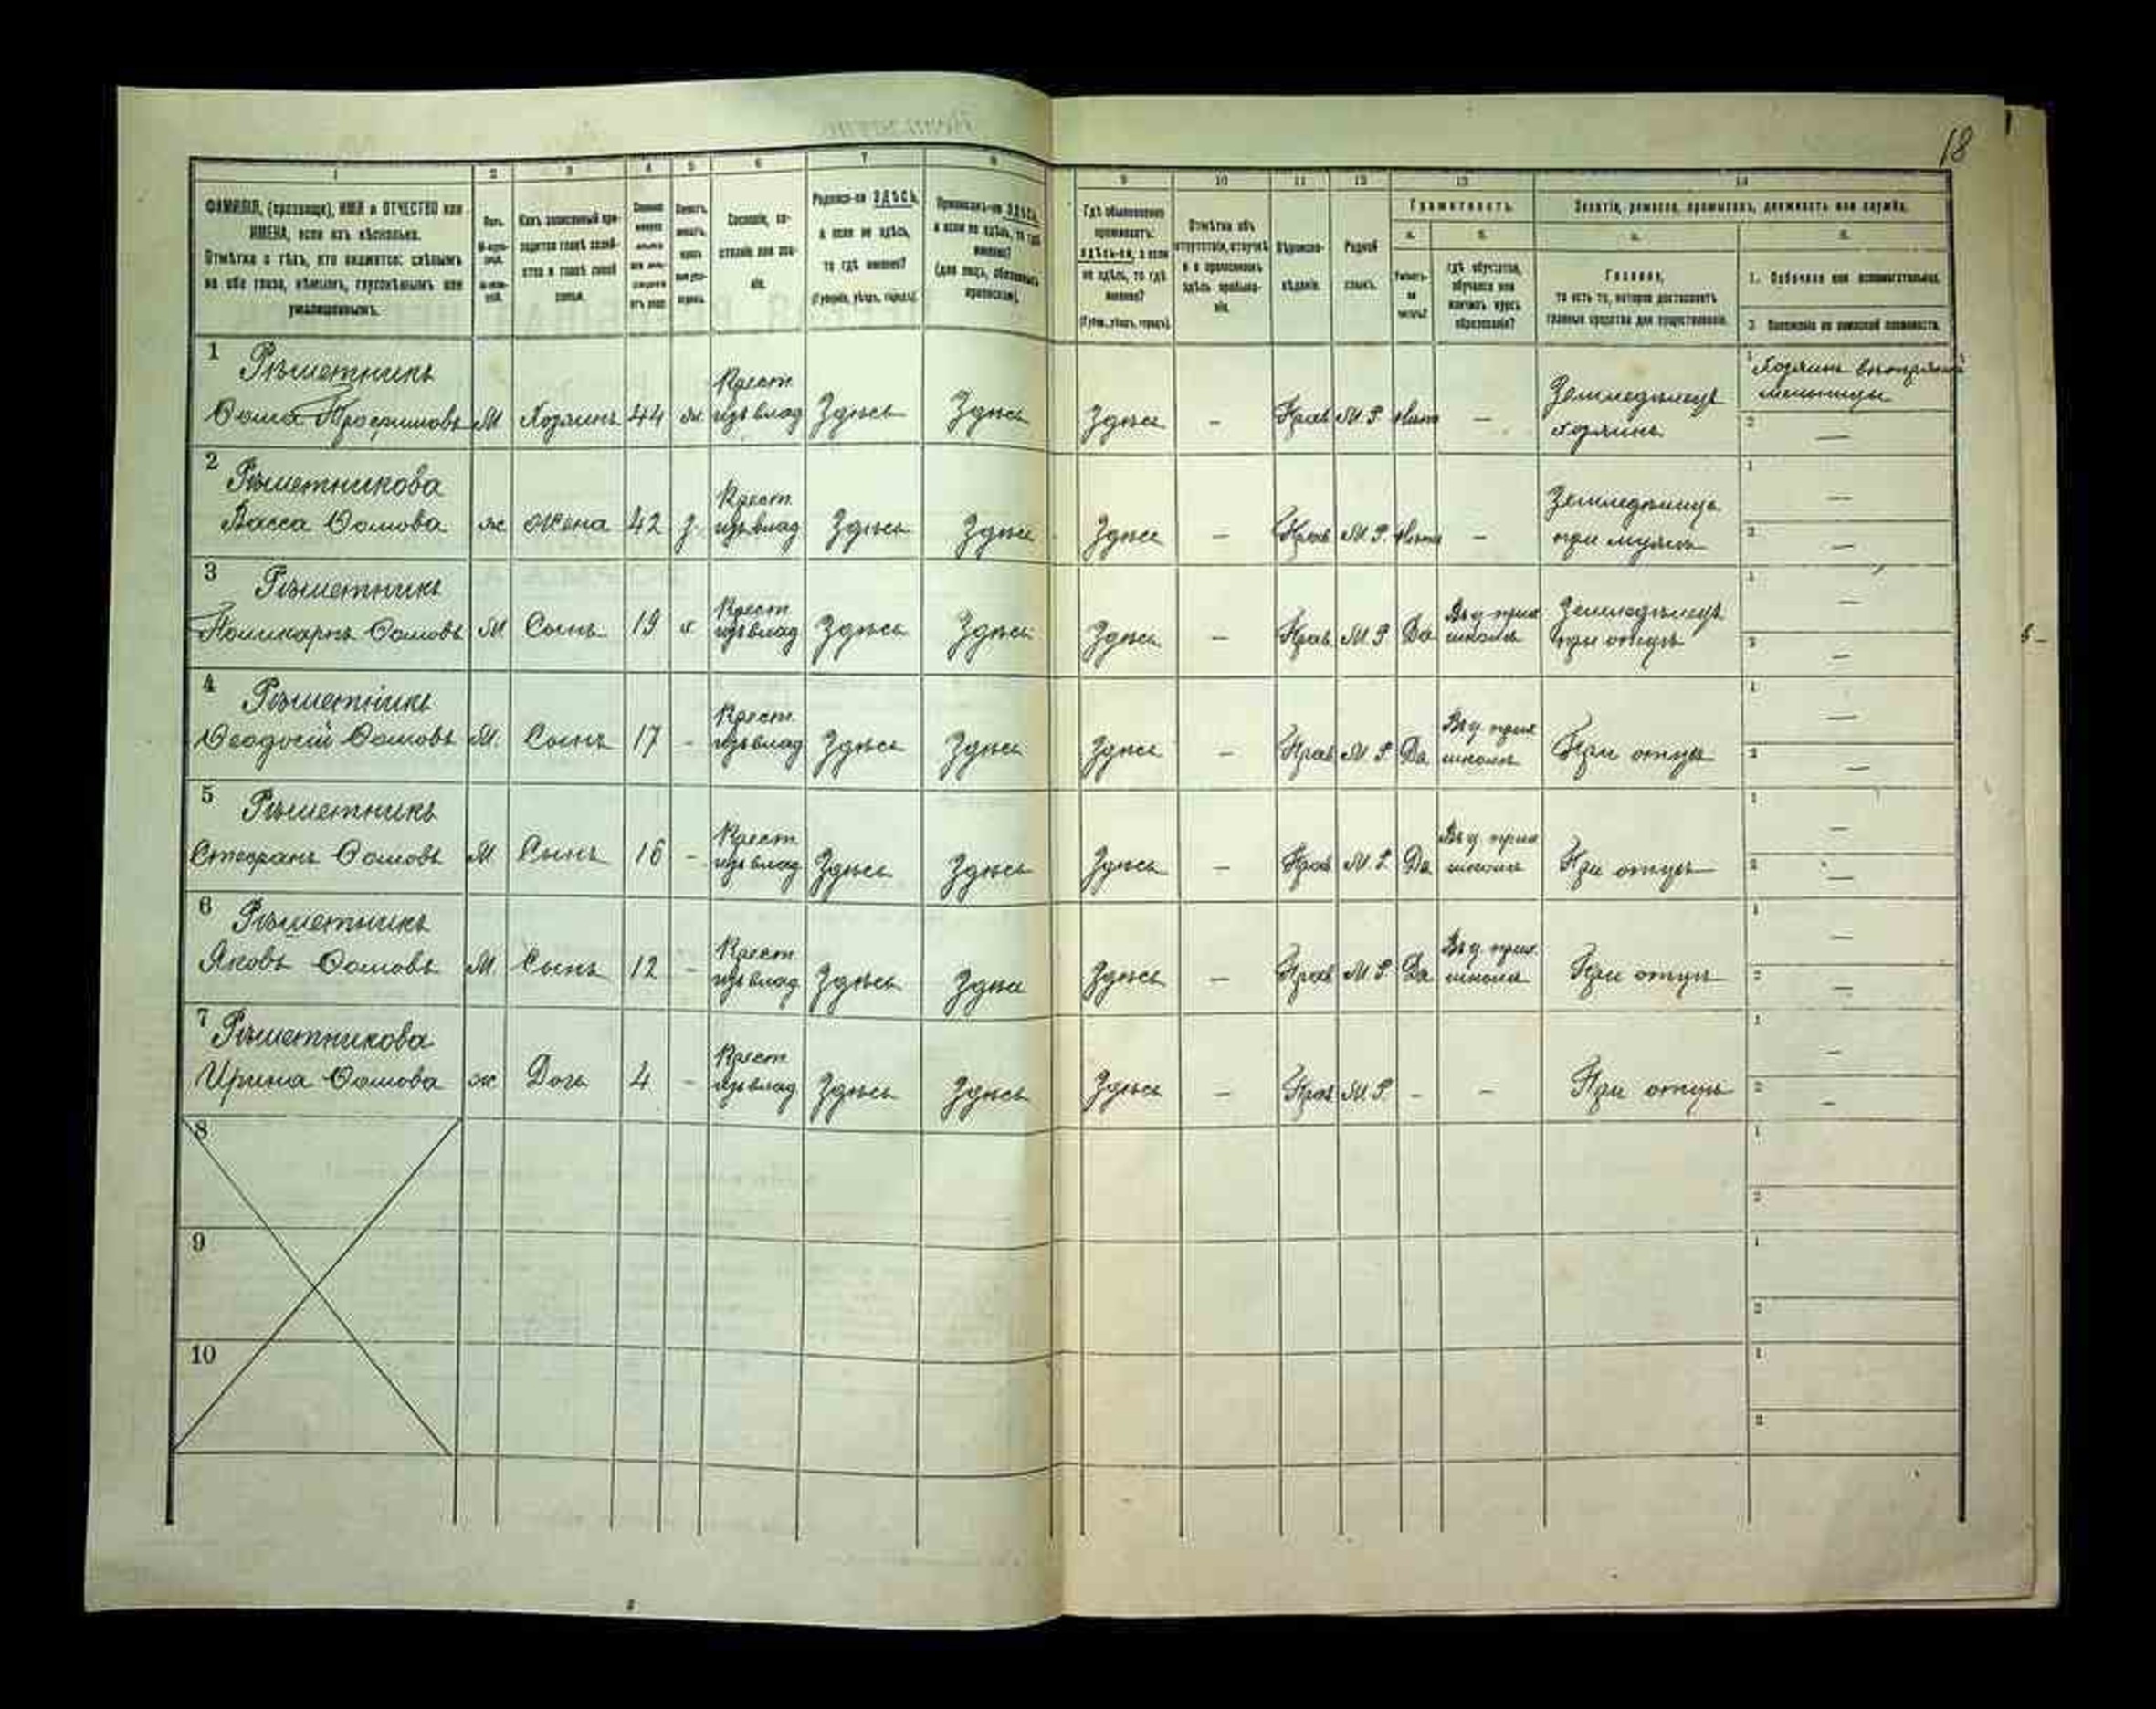 18
1 2 3 4 5 6 7 8 9 10 11 12 13 14
ФАМИЛІЯ, (прозвище), ИМЯ и ОТЧЕСТВО или
ИМЕНА, если ихъ нѣсколько.
Отмѣтка о тѣхъ, кто окажется: слѣпымъ
на оба глаза, нѣмымъ, глухонѣмымъ или
умалишеннымъ.
Полъ.
Какъ записанный при-
ходится главѣ хозяй-
ства и главѣ своей
семьи.
Сословіе, со-
стояніе или зва-
ніе.
Родился-ли ЗДѢСЬ,
а если не здѣсь,
то гдѣ именно?
(Губернія, уѣздъ, городъ).
Приписанъ-ли ЗДѢСЬ,
а если не здѣсь, то гдѣ
именно?
(для лицъ, обязанныхъ
припискою).
Гдѣ обыкновенно
проживаетъ:
здѣсь-ли, а если
не здѣсь, то гдѣ
именно?
(Губерн., уѣздъ, городъ).
Отмѣтка объ
отсутствіи, отлучкѣ
и о временномъ
здѣсь пребыва-
ніи.
Вѣроиспо-
вѣданіе.
Родной
языкъ.
Грамотность.
а. б.
Умѣетъ-
ли
читать?
гдѣ обучается,
обучался или
кончилъ курсъ
образованія?
Занятіе, ремесло, промыселъ, должность или служба.
а. б.
Главное,
то есть то, которое доставляетъ
главныя средства для существованія.
1. Побочное или вспомогательное.
2. Положеніе по воинской повинности.
1 Рѣшетникъ
Ѳома Трофимовъ М Хозяинъ 44 ж Крест. изъ влад Здѣсь Здѣсь Здѣсь — Прав М.Р. Нѣтъ — Земледѣлецъ хозяинъ 1 Хозяинъ вѣтряной мельницы 2 —
2 Рѣшетникова
Васса Ѳомова ж Жена 42 з. Крест. изъ влад Здѣсь Здѣсь Здѣсь — Прав М.Р. Нѣтъ — Земледѣлица при мужѣ 1 — 2 —
3 Рѣшетникъ
Поликарпъ Ѳомовъ М Сынъ 19 х Крест изъ влад Здѣсь Здѣсь Здѣсь — Прав М.Р Да Въ ц прих школѣ Земледѣлецъ при отцѣ 1 — 2 —
4 Рѣшетникъ
Ѳеодосій Ѳомовъ М. Сынъ 17 - Крест. изъ влад Здѣсь Здѣсь Здѣсь — Прав М.Р. Да Въ ц прих школѣ При отцѣ 1 — 2 —
5 Рѣшетникъ
Стефанъ Ѳомовъ М Сынъ 16 - Крест изъ влад Здѣсь Здѣсь Здѣсь — Прав М.Р. Да Въ ц прих школѣ При отцѣ 1 — 2 —
6 Рѣшетникъ
Яковъ Ѳомовъ М. Сынъ 12 - Крест. изъ влад Здѣсь Здѣсь Здѣсь — Прав М.Р Да Въ ц прих. школѣ При отцѣ 1 — 2 —
7 Рѣшетникова
Ирина Ѳомова ж Дочь 4 - Крест изъ влад Здѣсь Здѣсь Здѣсь — Прав М.Р. - - При отцѣ 1 — 2 —
8 1
2
9 1
2
10 1
2